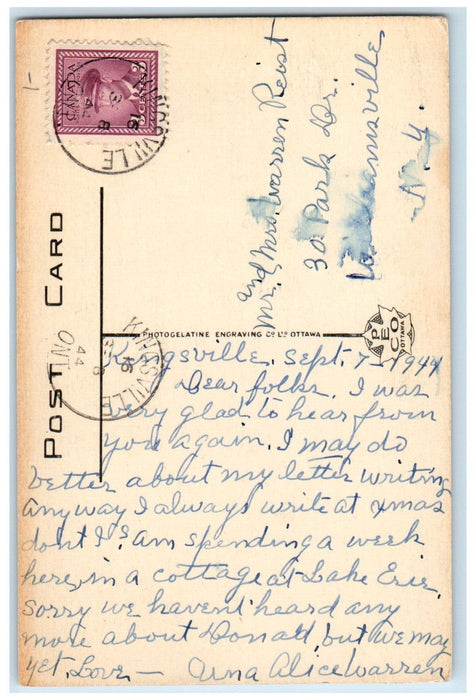 POST CARD
CANADA
KINGSVILLE
ONT
44
KINGSVILLE
Mr. and Mrs. Warren Reist
30 Park Dr.
Williamsville
N.Y.
PHOTOGELATINE ENGRAVING CO. LTD. OTTAWA
PECO
OTTAWA
Kingsville, Sept. 7-1944
Dear folks. I was
very glad to hear from
you again. I may do
better about my letter writing
anyway I always write at xmas
dont I? am spending a week
here, in a cottage at Lake Erie.
sorry we havent heard any
more about Donald but we may
yet. Love — Urna Alice Warren